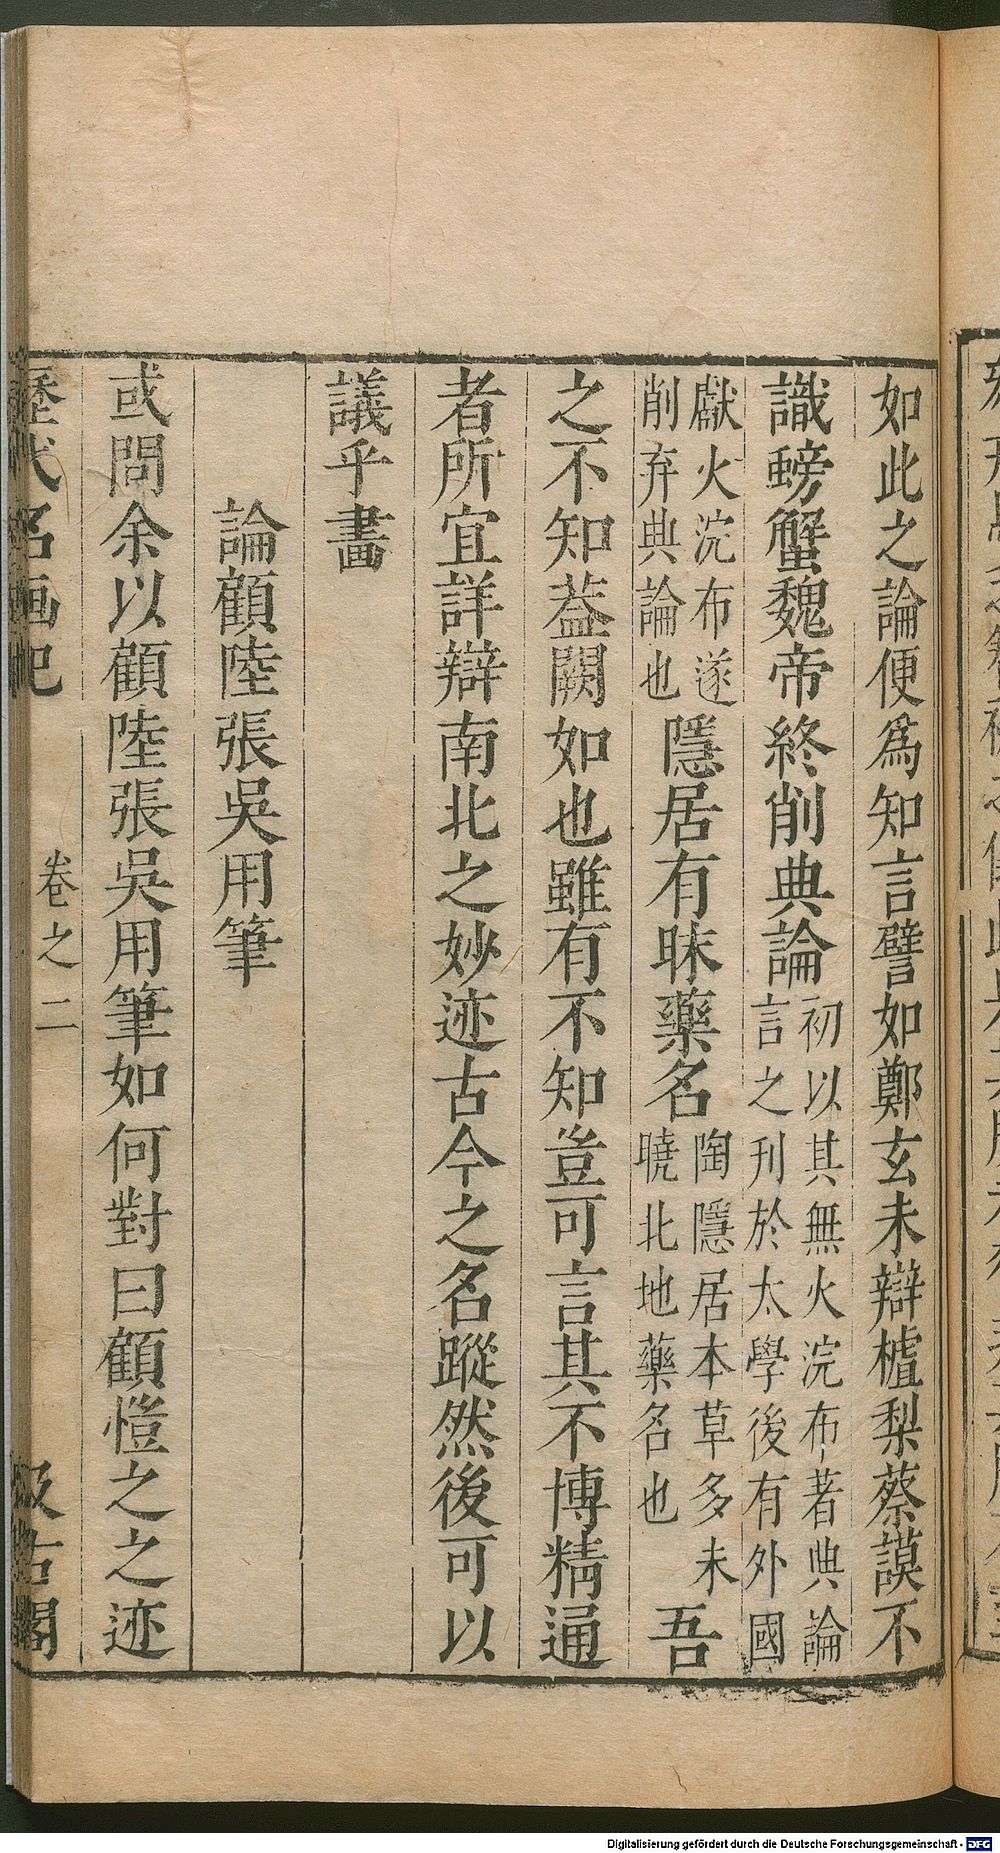 如此之論便爲知言譬如鄭玄未辯樝梨蔡謨不
識螃蟹魏帝終削典論初以其無火浣布著典論
言之刊於太學後有外國
獻火浣布遂
削弃典論也隱居有昧藥名陶隱居本草多未
曉北地藥名也吾
之不知葢闕如也雖有不知豈可言其不博精通
者所宜詳辯南北之妙迹古今之名蹤然後可以
議乎畫
論顧陸張吳用筆
或問余以顧陸張吳用筆如何對曰顧愷之之迹
歷代名画記
卷之二
汲古閣
Digitalisierung gefördert durch die Deutsche Forschungsgemeinschaft - DFG